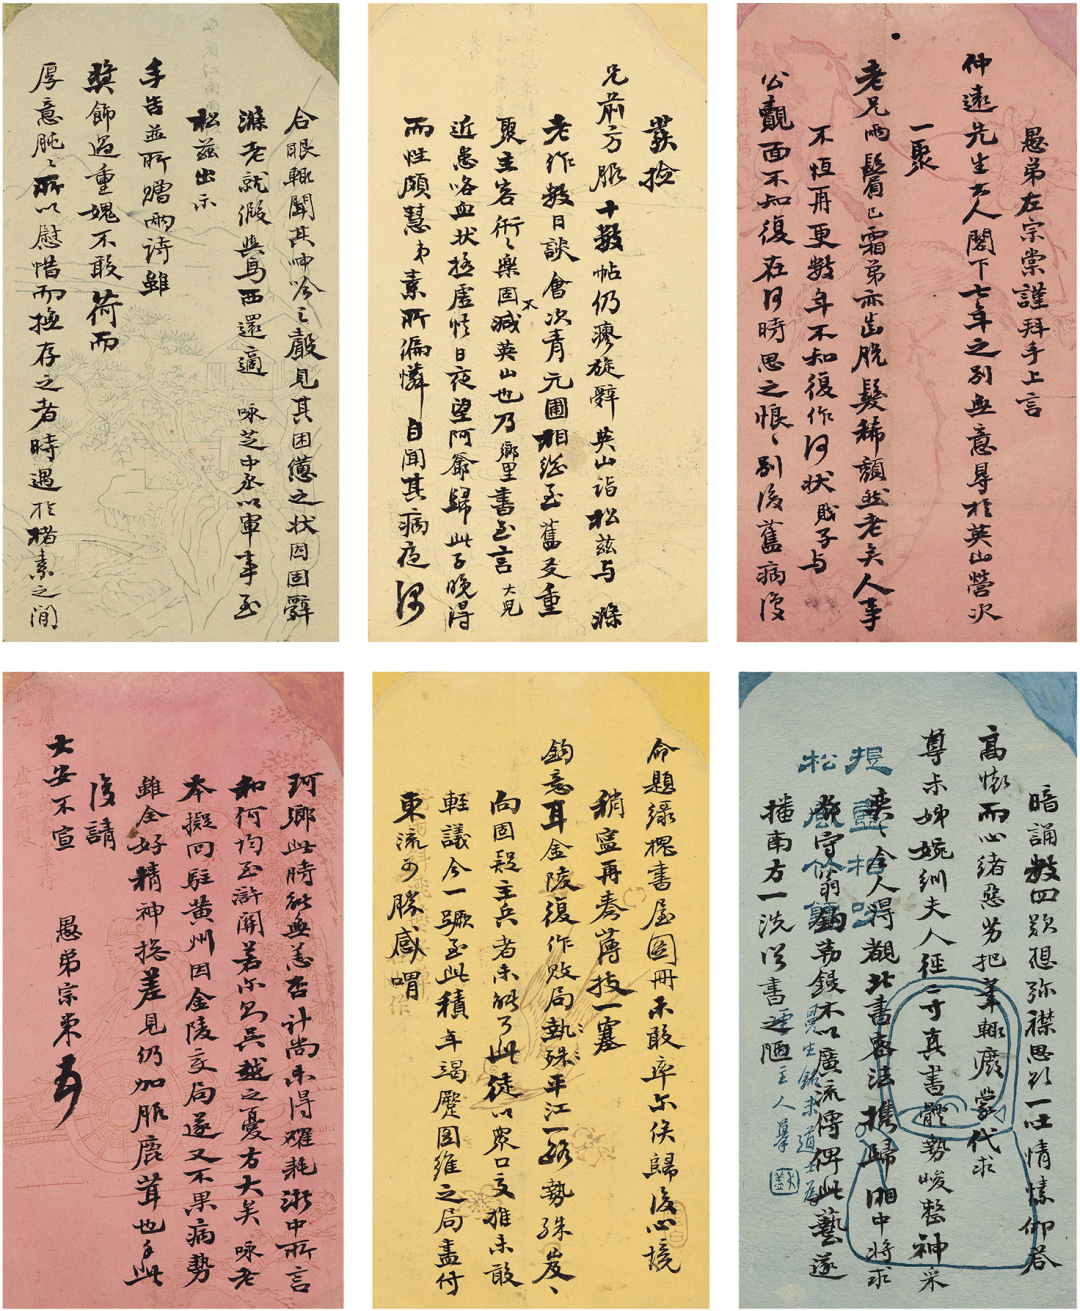 愚弟左宗棠謹拜手上言
仲遠先生大人閣下七年之別無意尋於英山營次
一聚
老兄兩鬢已霜弟亦齒脫髮稀頹然老矣人事
不恆再更數年不知復作何狀賤子与
公覿面不知復在何時思之悵悵別後舊病復
發撿
兄前方服十數帖仍瘳旋辭英山詣松茲与滌
老作數日談會次青元圃相繼至舊友重
聚主客衎衎樂固不減英山也乃鄉里書至言大兒
近患咯血狀極虛怯日夜望阿爺歸此子晚得
而性頗慧弟素所偏憐自聞其病夜
合眼輒聞其呻吟之聲見其困憊之狀因固辭
滌老就假與馬西還適詠芝中丞以軍事至
松茲出示
手告並所贈兩詩雖
獎飾過重媿不敢荷而
厚意肫肫所以慰惜而撫存之者時遇於楮素之間
暗誦數四欻想彌襟思欲一吐情愫仰答
高懷而心緒惡劣把筆輒廢蒙代求
尊未姊婉紃夫人徑二寸真書體勢峻整神采
奕奕令人得觀北書密法攜歸湘中將求
能守翁鉤勒鋟木以廣流傳俾此藝遂
播南方一洗從書之陋
命題綠槐書屋圖冊未敢率尓俟歸後心境
稍寧再奏薄技一塞
鈞意耳金陵復作敗局執殊平江一路勢殊岌岌
向固疑主兵者未能了此徒以眾口交推未敢
輕議今一蹶至此積年竭蹷圖維之局盡付
東流可勝感喟
珂鄉此時能無恙否計尚未得確耗浙中所言
和何均至滸關若尓則吳越之憂方大矣詠老
本擬回駐黃州因金陵變局遂又不果病勢
雖全好精神摠差見仍加服鹿茸也手此
復請
大安不宣 愚弟宗棠頓